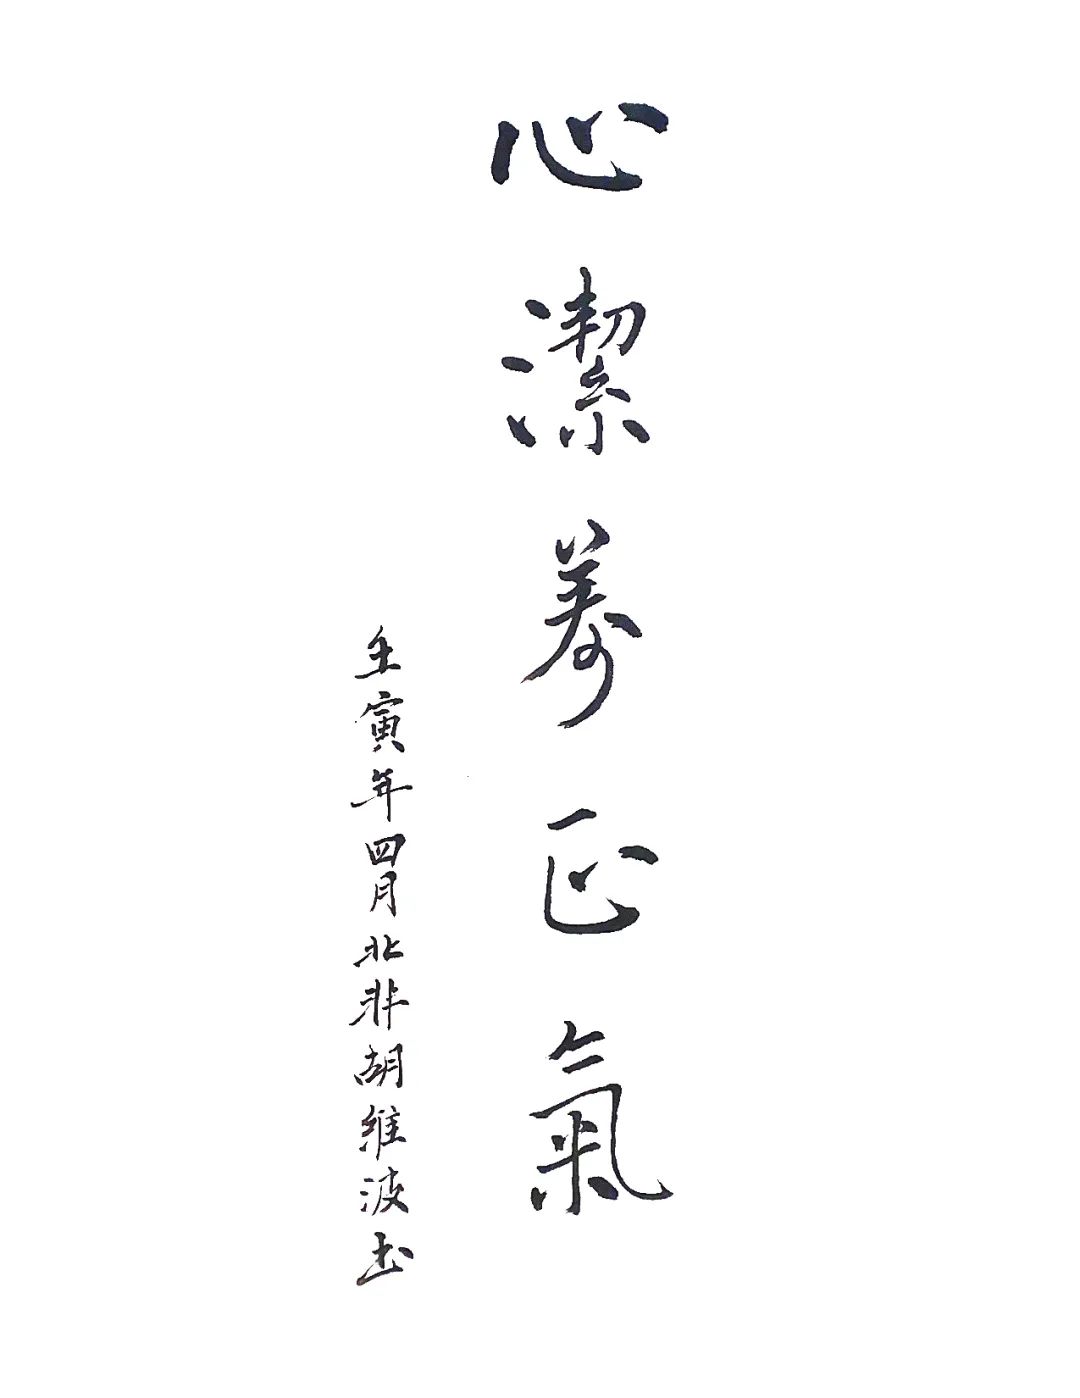 心潔養正氣
壬寅年四月北非胡維波书